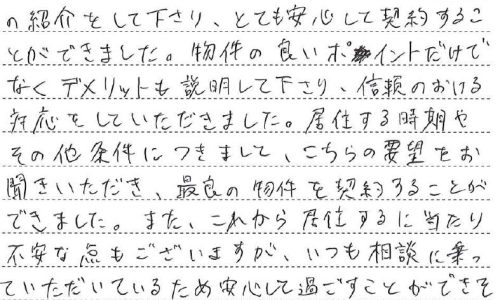 の紹介をして下さり、とても安心して契約するこ
とができました。物件の良いポイントだけで
なくデメリットも説明して下さり、信頼のおける
対応をしていただきました。居住する時期や
その他条件につきまして、こちらの要望をお
聞きいただき、最良の物件を契約することが
できました。また、これから居住するに当たり
不安な点もございますが、いつも相談に乗っ
ていただいているため安心して過ごすことができそ